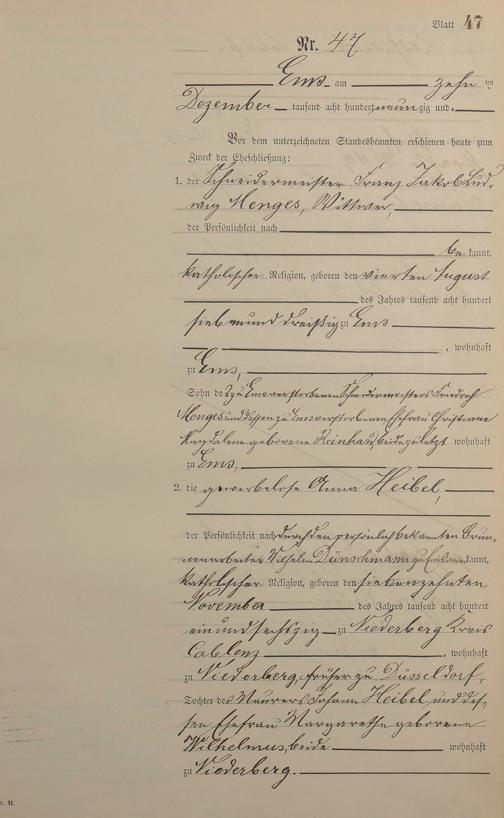 Blatt 47
Nr. 47
Ems am zehn ten
Dezember tausend acht hundert neunzig und
Vor dem unterzeichneten Standesbeamten erschienen heute zum
Zweck der Eheschließung:
1. der Schneidermeister Franz Jakob Lud-
wig Menges, Wittwer,
der Persönlichkeit nach
be kannt,
katholischer Religion, geboren den vierten August
des Jahres tausend acht hundert
siebenund dreißig zu Ems
, wohnhaft
zu Ems,
Sohn des zu Ems verstorbenen Schneidermeisters Friedrich
Menges und dessen zu Ems verstorbenen Ehefrau Christiane
Magdalene geborene Reinhard, beide zuletzt wohnhaft
zu Ems,
2. die gewerbelose Anna Heibel,
der Persönlichkeit nach durch den persönlich bekannten Brun-
nenarbeiter Wilhelm Dünschmann zu Ems kannt,
katholischer Religion, geboren den siebenzehnten
November des Jahres tausend acht hundert
einundsechszig zu Niederberg Kreis
Coblenz , wohnhaft
zu Niederberg, früher zu Düsseldorf,
Tochter des Maurers Johann Heibel und des-
sen Ehefrau Margarethe geborene
Wilhelmus, beide wohnhaft
zu Niederberg.